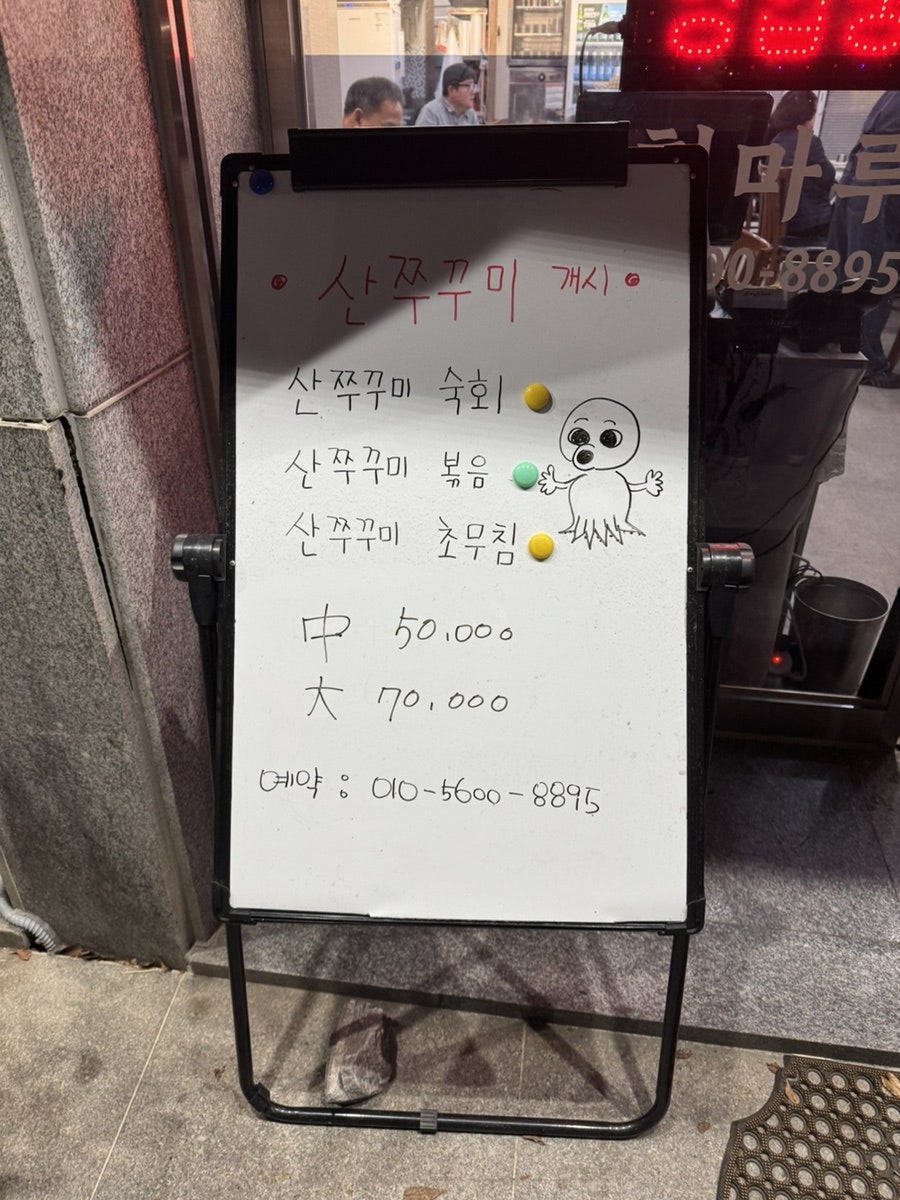 • 산쭈꾸미 개시 •
산 쭈꾸미 숙회
산 쭈꾸미 볶음
산 쭈꾸미 초무침
中 50,000
大 70,000
예약 : 010-5600-8895
마루
00-8895